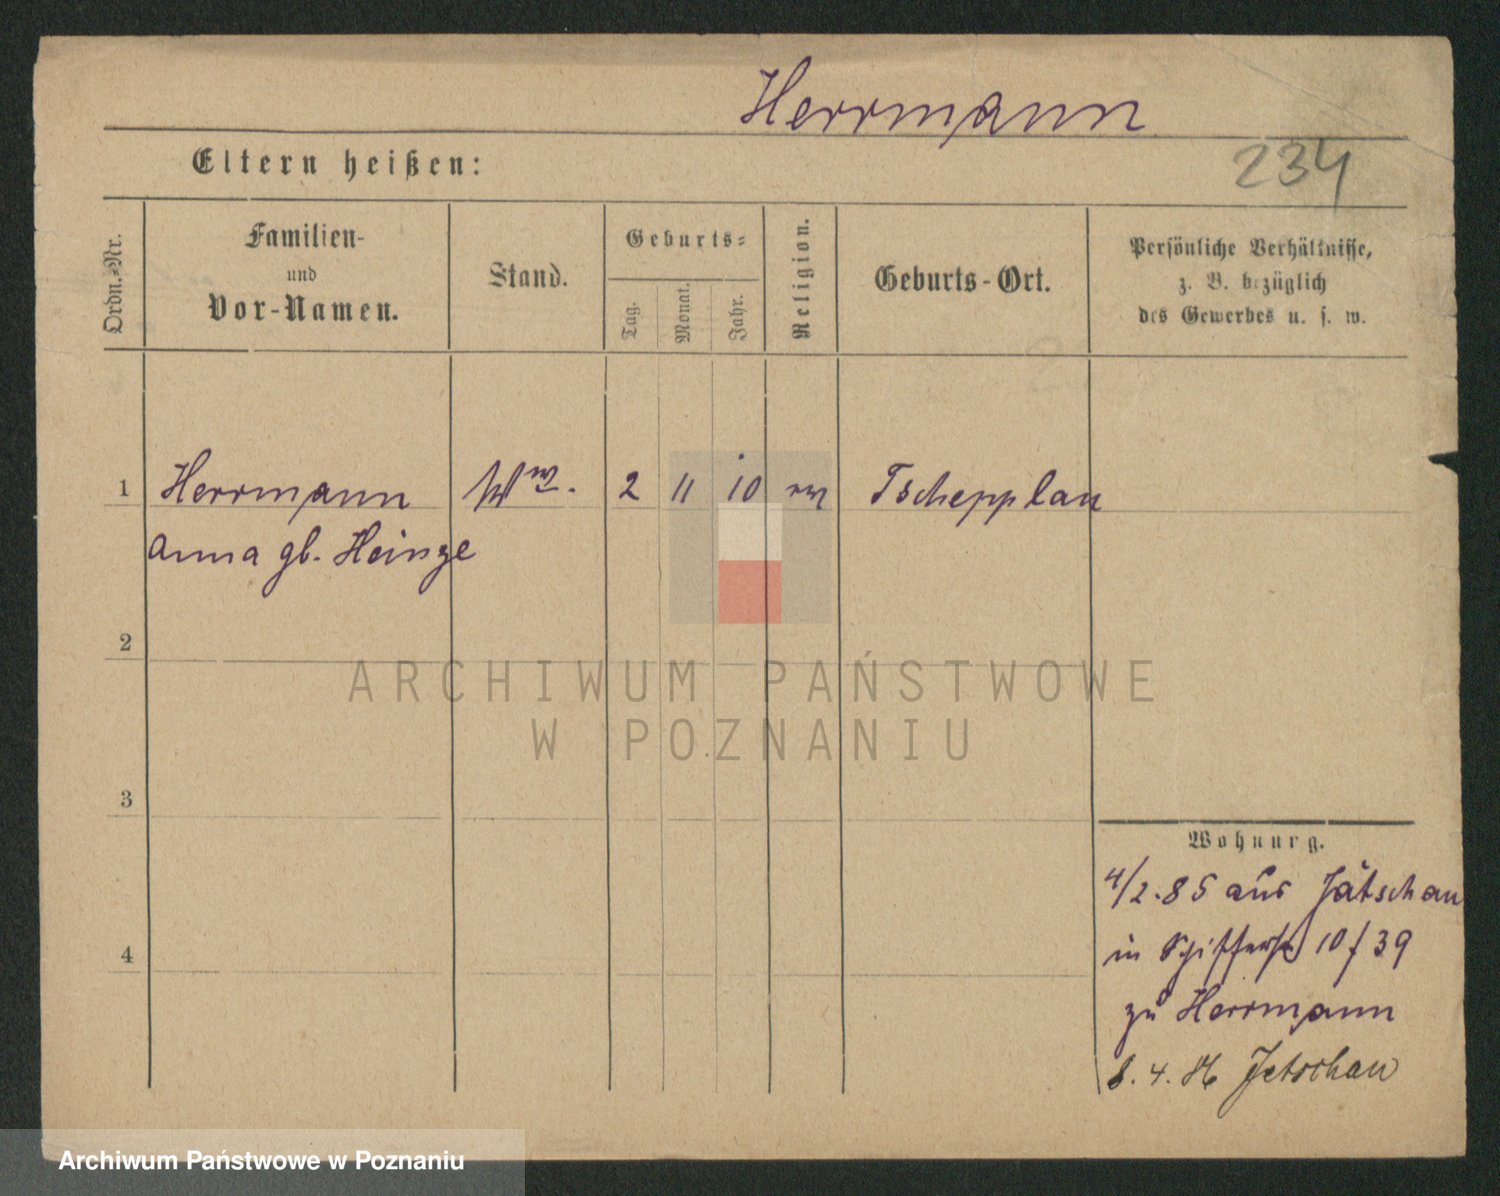 Herrmann
Eltern heißen:
234
Ordn.-Nr.
Familien-
und
Vor-Namen.
Stand.
Geburts-
Tag.
Monat.
Jahr.
Religion.
Geburts-Ort.
Persönliche Verhältnisse,
z. B. bezüglich
des Gewerbes u. s. w.
1 Herrmann Ww. 2 11 10 Tschepplau
Anna gb. Heinze
2
ARCHIWUM PAŃSTWOWE
W POZNANIU
3
Wohnung.
4/2.85 aus Jätschau
in 10 / 39
4
zu Herrmann
8. 4. 86 Jetschau
Archiwum Państwowe w Poznaniu